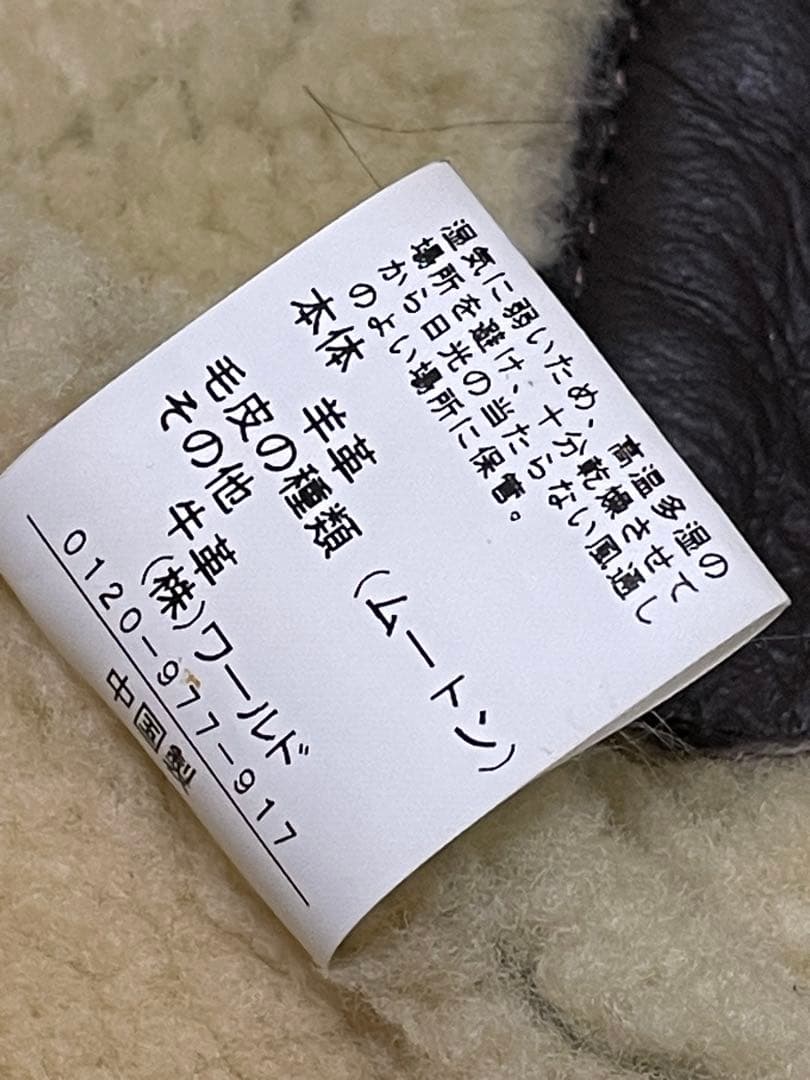 湿気に弱いため、高温多湿の
場所を避け、十分乾燥させて
から日光の当たらない風通し
のよい場所に保管。
本体 羊革
毛皮の種類(ムートン)
その他 牛革
(株)ワールド
0120-977-917
中国製